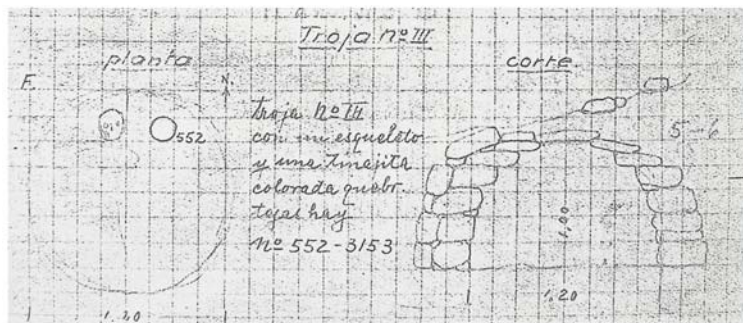 Troja nº III
planta
corte.
F.
N
552
Troja nº III
con un esqueleto
y una tinajita
colorada quebr.
tejas hay
nº 552-3153
5-6
1,00
1,20
1,20